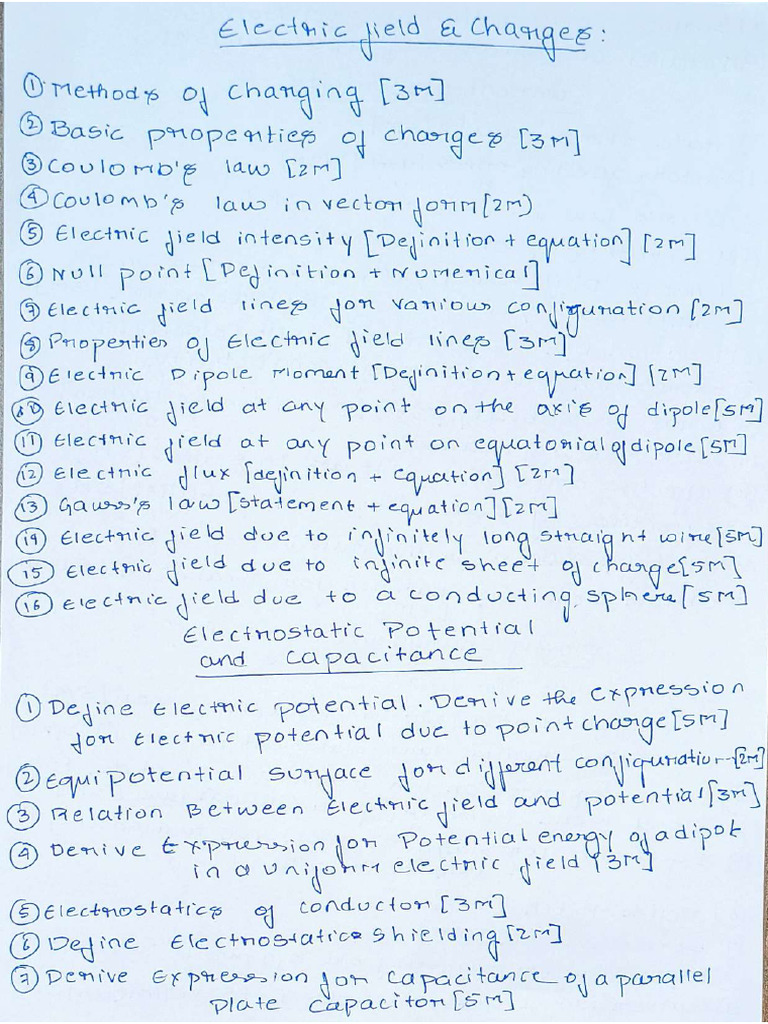 Electric field & Charges:
① Methods of Charging [3M]
② Basic properties of charges [3M]
③ Coulomb's law [2M]
④ Coulomb's law in vector form [2M)
⑤ Electric field intensity [Definition + equation] [2M]
⑥ Null point [Definition + Numerical]
⑦ Electric field lines for various configuration [2M]
⑧ Properties of Electric field lines [3M]
⑨ Electric Dipole Moment [Definition + equation] [2M]
⑩ Electric field at any point on the axis of dipole [5M]
⑪ Electric field at any point on equatorial of dipole [5M]
⑫ Electric flux [definition + equation] [2M]
⑬ Gauss's law [statement + equation] [2M]
⑭ Electric field due to infinitely long straight wire [5M]
⑮ Electric field due to infinite sheet of charge [5M]
⑯ Electric field due to a conducting sphere [5M]
Electrostatic Potential
and Capacitance
① Define Electric potential. Derive the Expression
for Electric potential due to point charge [5M]
② Equipotential surface for different configuration - [2M]
③ Relation Between Electric field and potential [3M]
④ Derive Expression for Potential energy of a dipole
in a uniform electric field [3M]
⑤ Electrostatics of conductor [3M]
⑥ Define Electrostatics shielding [2M]
⑦ Derive Expression for capacitance of a parallel
Plate capacitor [5M]